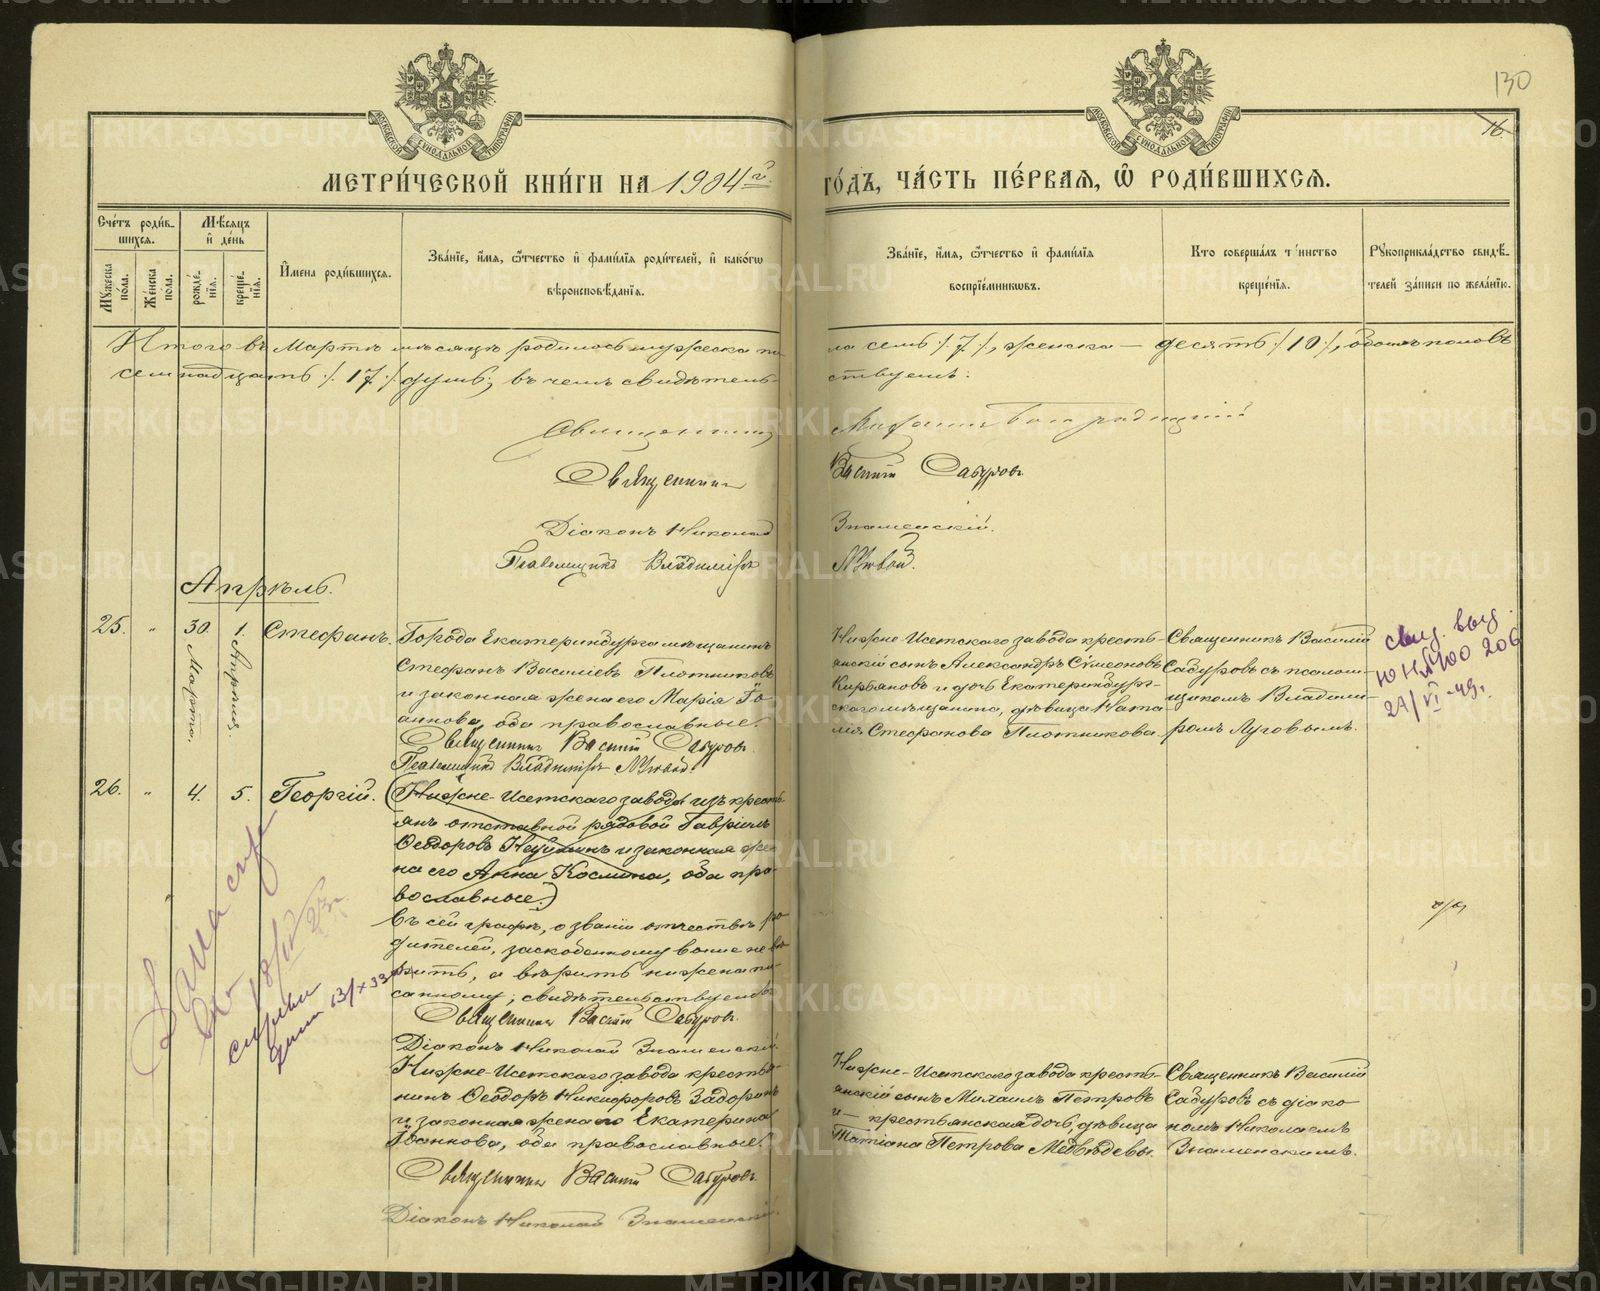 130
16
МОСКОВСКОЙ СѴНОДАЛЬНОЙ ТИПОГРАФІИ
МОСКОВСКОЙ СѴНОДАЛЬНОЙ ТИПОГРАФІИ
МЕТРИ́ЧЕСКОЙ КНИ́ГИ НА 1904й
ГО́ДЪ, ЧА́СТЬ ПЕ́РВАЯ, Ѽ РОДИ́ВШИХСЯ.
Сче́тъ роди́в-
шихся.
Му́жеска по́ла.
Же́нска по́ла.
Мѣ́сяцъ и де́нь
рожде́нїя.
креще́нїя.
И҆мена роди́вшихся.
Зва́нїе, и҆́мя, ѻ҆́тчество и҆ фами́лїя роди́телей, и҆ како́гѡ
вѣроисповѣ́данїя.
Зва́нїе, и҆́мя, ѻ҆́тчество и҆ фами́лїя
воспрїе́мникѡвъ.
Кто соверша́лъ та́инство
креще́нїя.
Рукоприкла́дство свидѣ́-
телей за́писи по жела́нїю.
Итого въ Мартѣ мѣсяцѣ родилось мужеска по
ла семь ∕. 7 ∕., женска — десять ∕. 10 ∕., обоихъ половъ
семнадцать ∕. 17 ∕. душъ; въ чемъ свидѣтель-
ствуемъ:
Священникъ
Священникъ
Василій Сабуровъ
Діаконъ Николай
Знаменскій.
Псаломщикъ Владиміръ
Луговой.
Апрѣль.
25. " 30. Марта. 1. Апрѣля Стефанъ.
Города Екатеринбурга мѣщанинъ
Стефанъ Васильевъ Плотниковъ
и законная жена его Марія Іо-
аннова, оба православные.
Священникъ Василій Сабуровъ.
Псаломщикъ Владиміръ Луговой.
Нижне-Исетскаго завода кресть-
янскій сынъ Александръ Сѵмеоновъ
и дочь Екатеринбург-
скаго мѣщанина, дѣвица Ната-
лія Стефанова Плотникова.
Священникъ Василій
Сабуровъ съ псалом-
щикомъ Владими-
ромъ Луговымъ.
свид. выд.
206
26. " 4. 5. Георгій.
(Нижне-Исетскаго завода изъ кресть-
янъ отставной рядовой Гавріилъ
Ѳеодоровъ Неуйминъ и законная же-
на его Анна Космина, оба пра-
вославные.)
Въ сей графѣ, о званіи отчествѣ ро-
дителей, заскобенному выше не вѣ-
рить, а вѣрить нижена пи-
санному; свидѣтельствуемъ:
Священникъ Василій Сабуровъ.
Діаконъ Николай Знаменскій.
Нижне-Исетскаго завода крестья-
нинъ Ѳеодоръ Никифоровъ Задоринъ
и законная жена его Екатерина
Іоаннова, оба православные.
Священникъ Василій Сабуровъ.
Діаконъ Николай Знаменскій.
Нижне-Исетскаго завода кресть-
янскій сынъ Михаилъ Петровъ
и — крестьянская дочь, дѣвица
Татіана Петрова Медвѣдевы.
Священникъ Василій
Сабуровъ съ діако-
номъ Николаемъ
Знаменскимъ.